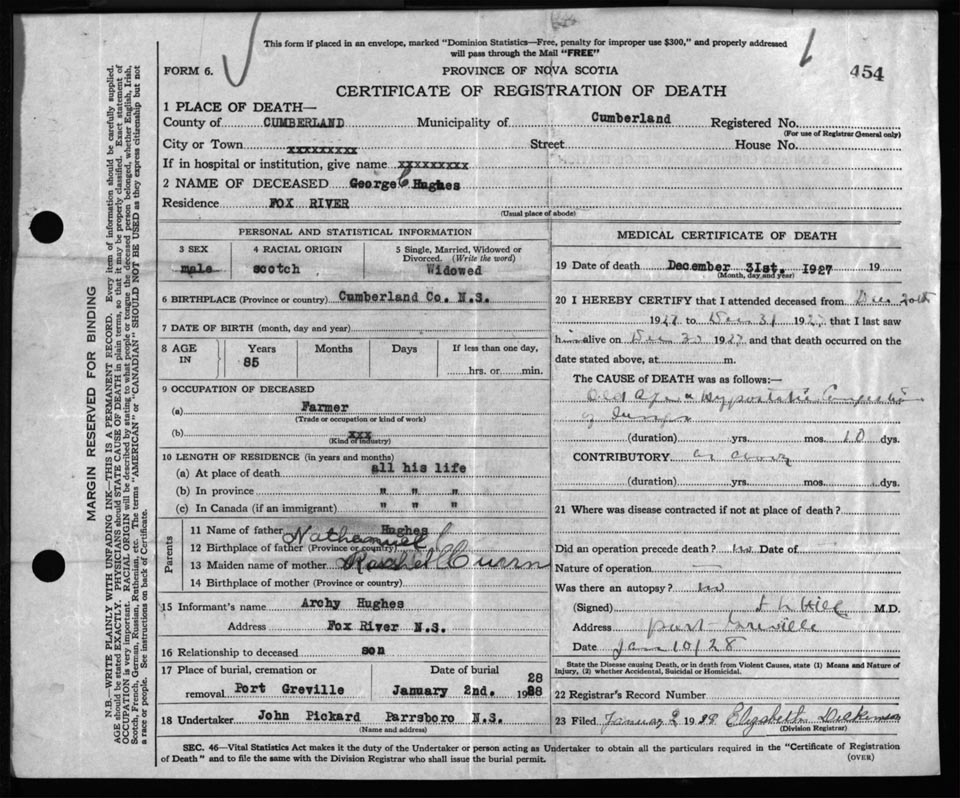 This form if placed in an envelope, marked "Dominion Statistics—Free, penalty for improper use $300," and properly addressed
will pass through the Mail "FREE"
FORM 6.
PROVINCE OF NOVA SCOTIA
454
CERTIFICATE OF REGISTRATION OF DEATH
1 PLACE OF DEATH—
County of CUMBERLAND Municipality of Cumberland Registered No.
(For use of Registrar General only)
City or Town xxxxxxxxx Street House No.
If in hospital or institution, give name xxxxxxxxx
2 NAME OF DECEASED George Hughes
Residence FOX RIVER
(Usual place of abode)
PERSONAL AND STATISTICAL INFORMATION
3 SEX 4 RACIAL ORIGIN 5 Single, Married, Widowed or
Divorced. (Write the word)
male scotch Widowed
6 BIRTHPLACE (Province or country) Cumberland Co. N.S.
7 DATE OF BIRTH (month, day and year)
8 AGE IN Years Months Days If less than one day,
85 hrs. or min.
9 OCCUPATION OF DECEASED
(a) Farmer
(Trade or occupation or kind of work)
(b) xxx
(Kind of industry)
10 LENGTH OF RESIDENCE (in years and months)
(a) At place of death all his life
(b) In province " " "
(c) In Canada (if an immigrant) " " "
Parents
11 Name of father Nathaniel Hughes
12 Birthplace of father (Province or country)
13 Maiden name of mother Rachel
14 Birthplace of mother (Province or country)
15 Informant's name Archy Hughes
Address Fox River N.S.
16 Relationship to deceased son
17 Place of burial, cremation or Date of burial
removal Port Greville January 2nd. 1928 28
18 Undertaker John Pickard Parrsboro N.S.
(Name and address)
MEDICAL CERTIFICATE OF DEATH
19 Date of death December 31st. 1927 19
(Month, day and year)
20 I HEREBY CERTIFY that I attended deceased from Dec 20th
1927 to Dec 31 1927 that I last saw
him alive on Dec 1927 and that death occurred on the
date stated above, at m.
The CAUSE of DEATH was as follows:—
Old Age & Hypostatic Congestion
of Lungs
(duration) yrs. mos. 10 dys.
CONTRIBUTORY as above
(duration) yrs. mos. dys.
21 Where was disease contracted if not at place of death?
Did an operation precede death? no Date of
Nature of operation —
Was there an autopsy? no
(Signed) Hill M.D.
Address port Greville
Date Jan 10/28
State the Disease causing Death, or in death from Violent Causes, state (1) Means and Nature of
Injury, (2) whether Accidental, Suicidal or Homicidal.
22 Registrar's Record Number
23 Filed January 2 19 Elizabeth Dickinson
(Division Registrar)
SEC. 46—Vital Statistics Act makes it the duty of the Undertaker or person acting as Undertaker to obtain all the particulars required in the "Certificate of Registration
of Death" and to file the same with the Division Registrar who shall issue the burial permit.
(OVER)
MARGIN RESERVED FOR BINDING
N.B.—WRITE PLAINLY WITH UNFADING INK—THIS IS A PERMANENT RECORD. Every item of information should be carefully supplied.
AGE should be stated EXACTLY. PHYSICIANS should STATE CAUSE OF DEATH in plain terms, so that it may be properly classified. Exact statement of
OCCUPATION is very important. RACIAL ORIGIN will be described by stating to what people or tongue the deceased person belonged, whether English, Irish,
Scotch, French, German, Russian, Ruthenian, etc. The terms "AMERICAN" or "CANADIAN" SHOULD NOT BE USED as they express citizenship but not
a race or people. See instructions on back of Certificate.